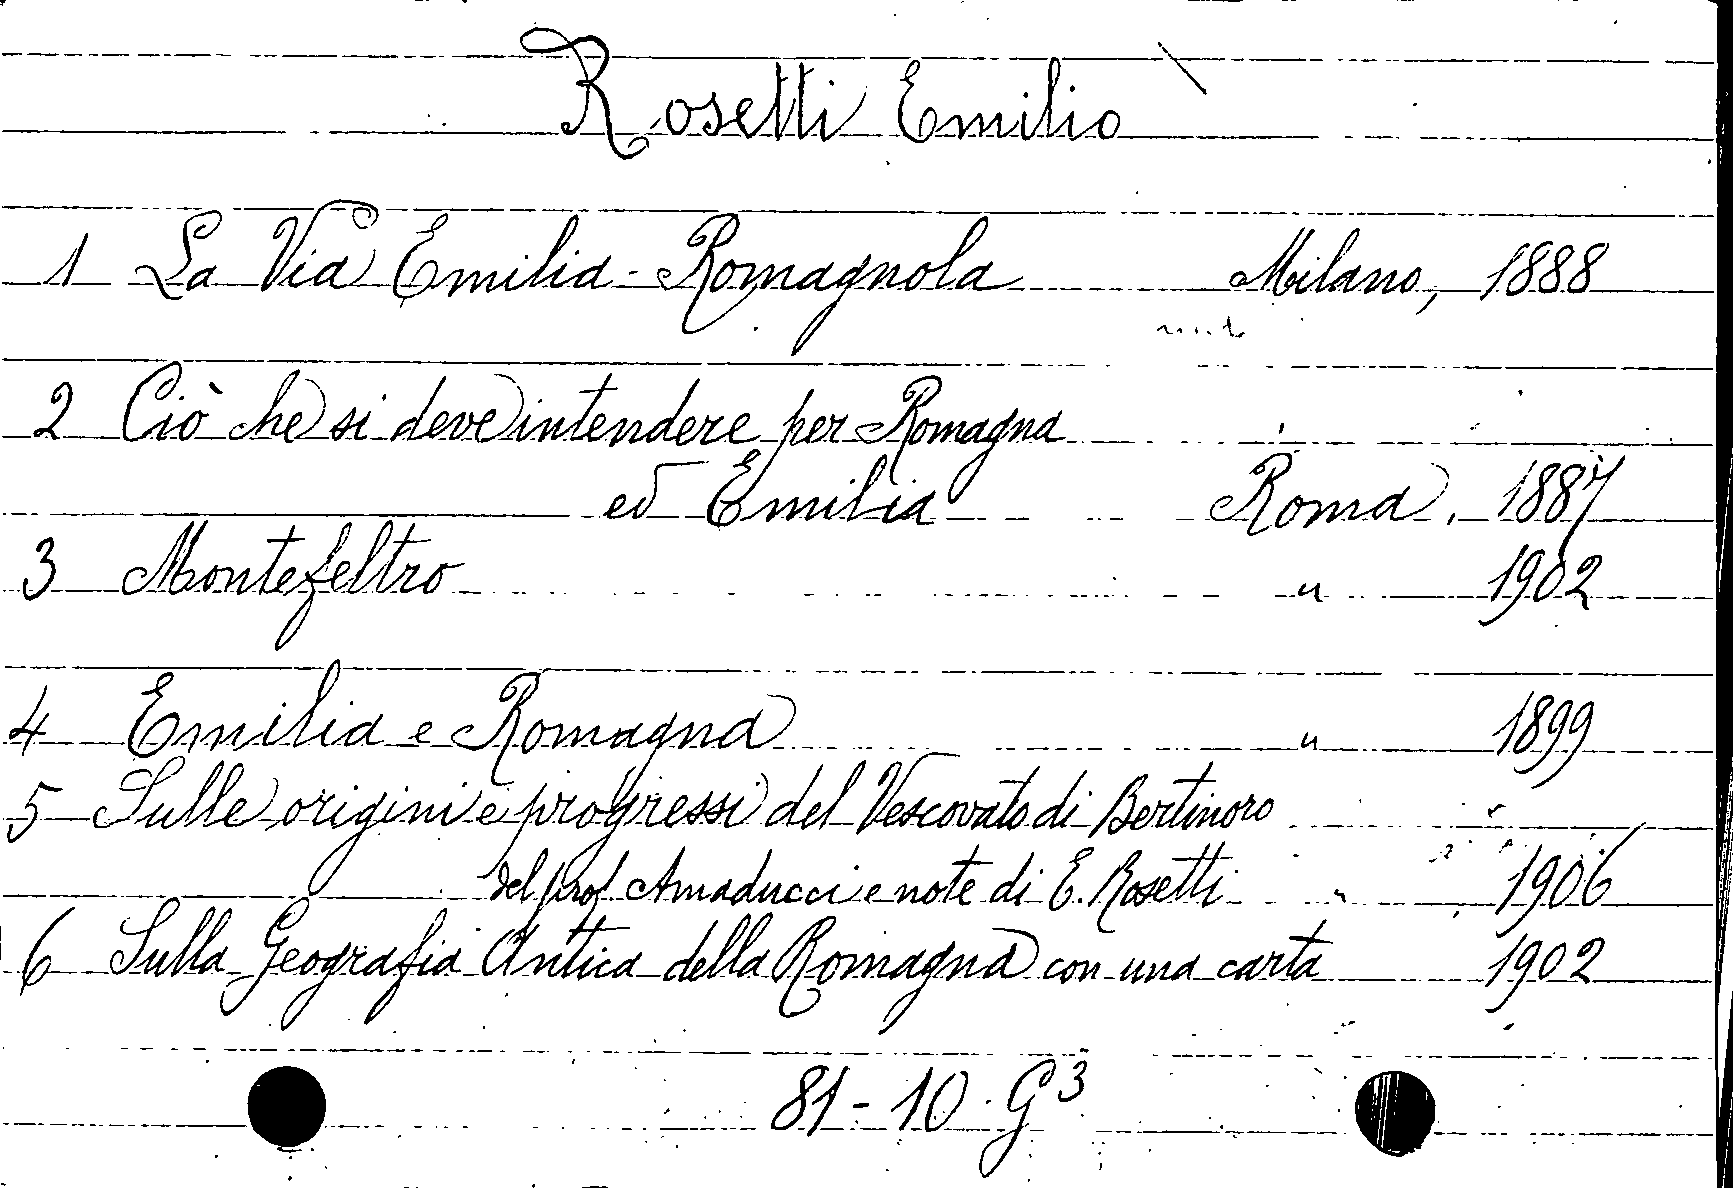 Rosetti Emilio
1 La Via Emilia-Romagnola Milano, 1888
2 Ciò che si deve intendere per Romagna
ed Emilia Roma, 1887
3 Montefeltro " 1902
4 Emilia e Romagna " 1899
5 Sulle origini e progressi del Vescovato di Bertinoro
del prof. Amaducci e note di E. Rosetti " 1906
6 Sulla Geografia Antica della Romagna con una carta 1902
81-10.G³